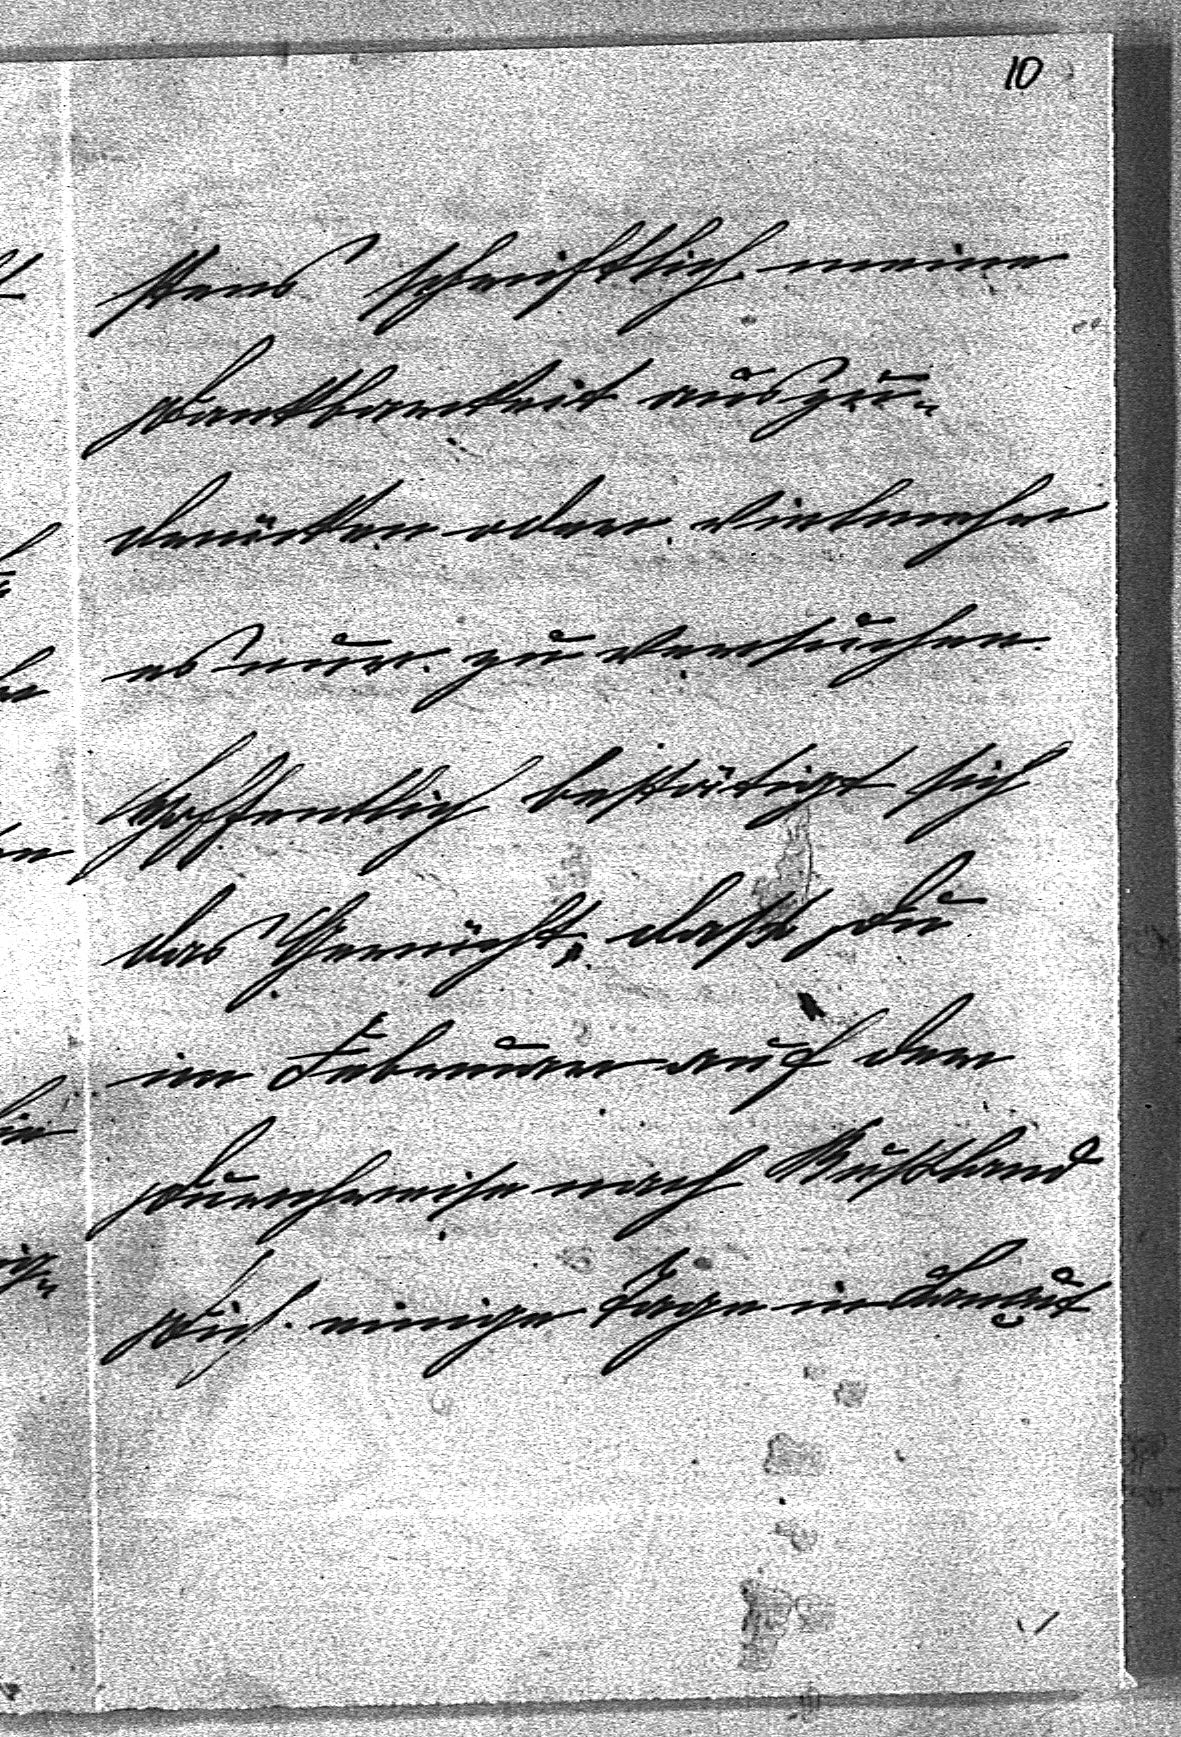 10
stens schriftlich meine
Dankbarkeit auszu-
drücken oder vielmehr
es nur zu versuchen.
Hoffentlich bestätigt sich
das Gerücht, dass Du
im Februar auf der
Durchreise nach Russland
Dich einige Tage in